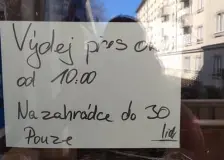 Výdej přes o
od 10:00
Na zahrádce do 30
Pouze lidí